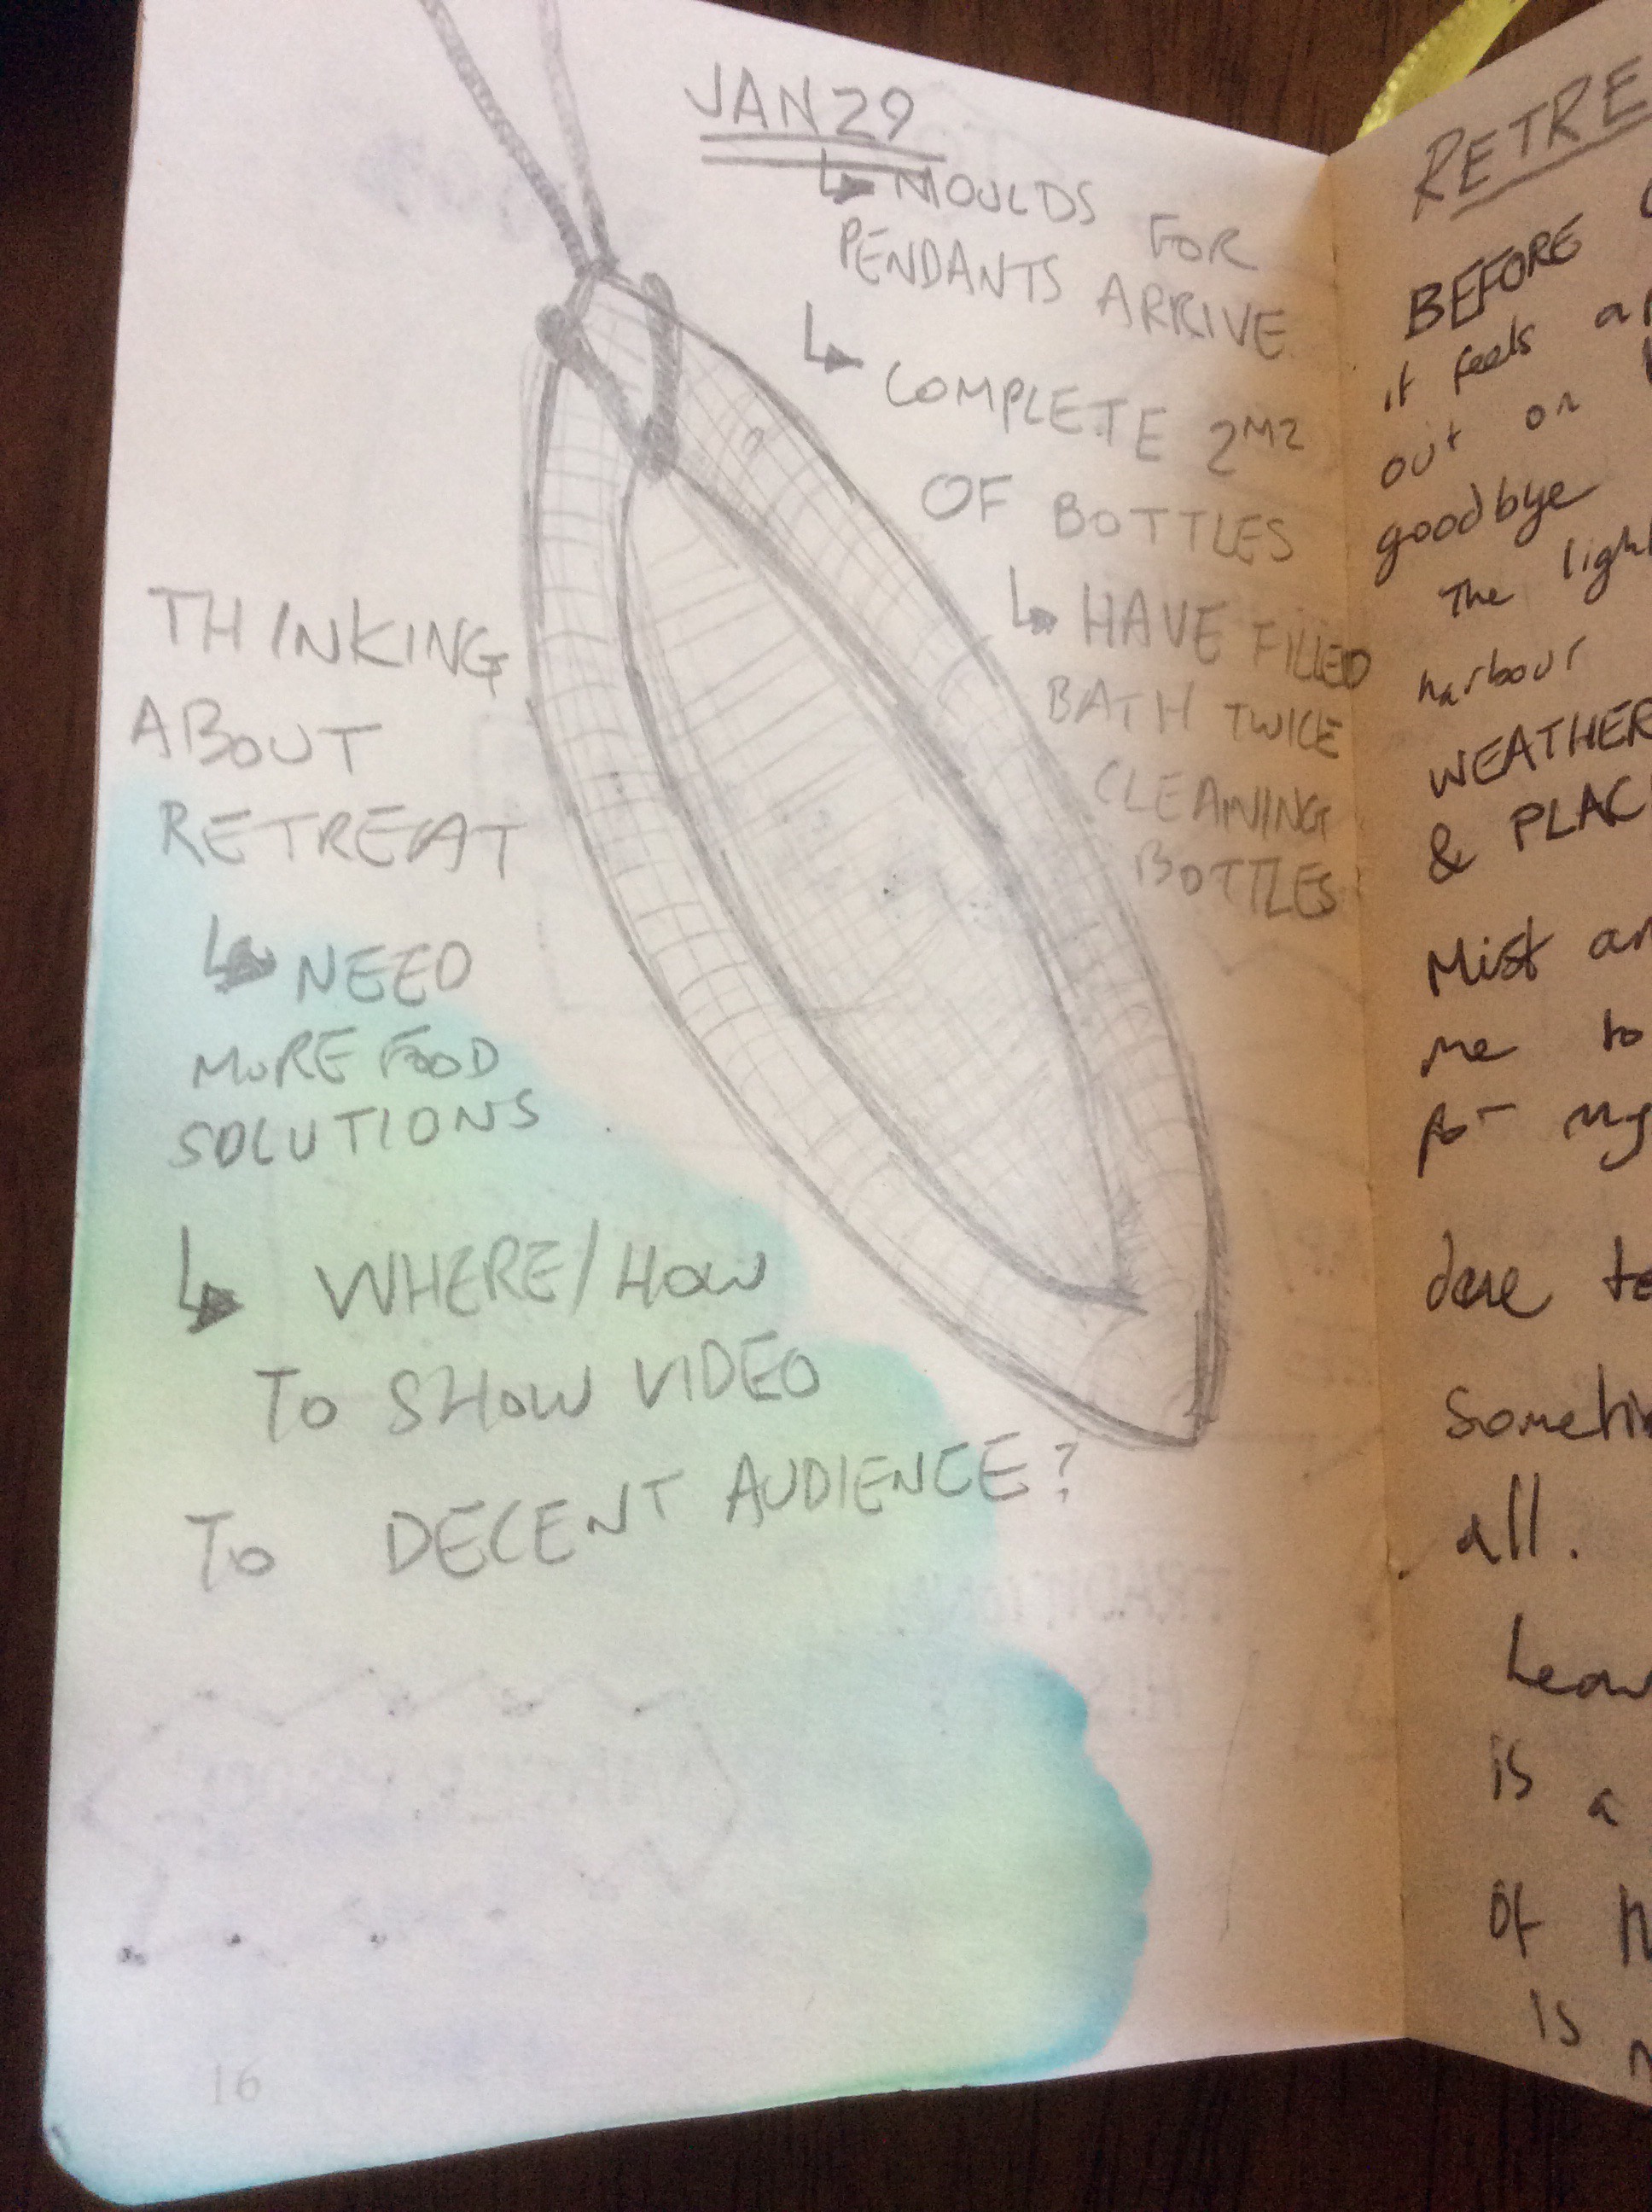 JAN 29
↳ MOULDS FOR
PENDANTS ARRIVE
↳ COMPLETE 2M2
OF BOTTLES
↳ HAVE FILLED
BATH TWICE
CLEANING
BOTTLES
THINKING
ABOUT
RETREAT
↳ NEED
MORE FOOD
SOLUTIONS
↳ WHERE/HOW
TO SHOW VIDEO
TO DECENT AUDIENCE?
16
RETRE
BEFORE
it feels
out on
goodbye
The
harbour
WEATHER
& PLAC
Mist
me to
for my
dare
all.
is a
of
is